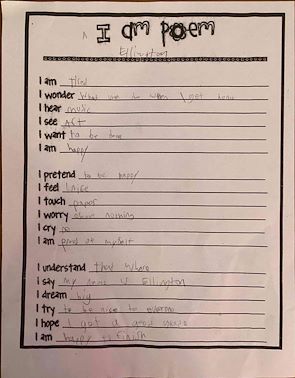 I am poem
Ellington
I am tired
I wonder what we do when I get home
I hear music
I see Art
I want to be
I am happy
I pretend to be happy
I feel
I touch paper
I worry about nothing
I cry
I am proud of myself
I understand
I say my name is Ellington
I dream big
I try to be nice to
I hope I get a good
I am happy to finish